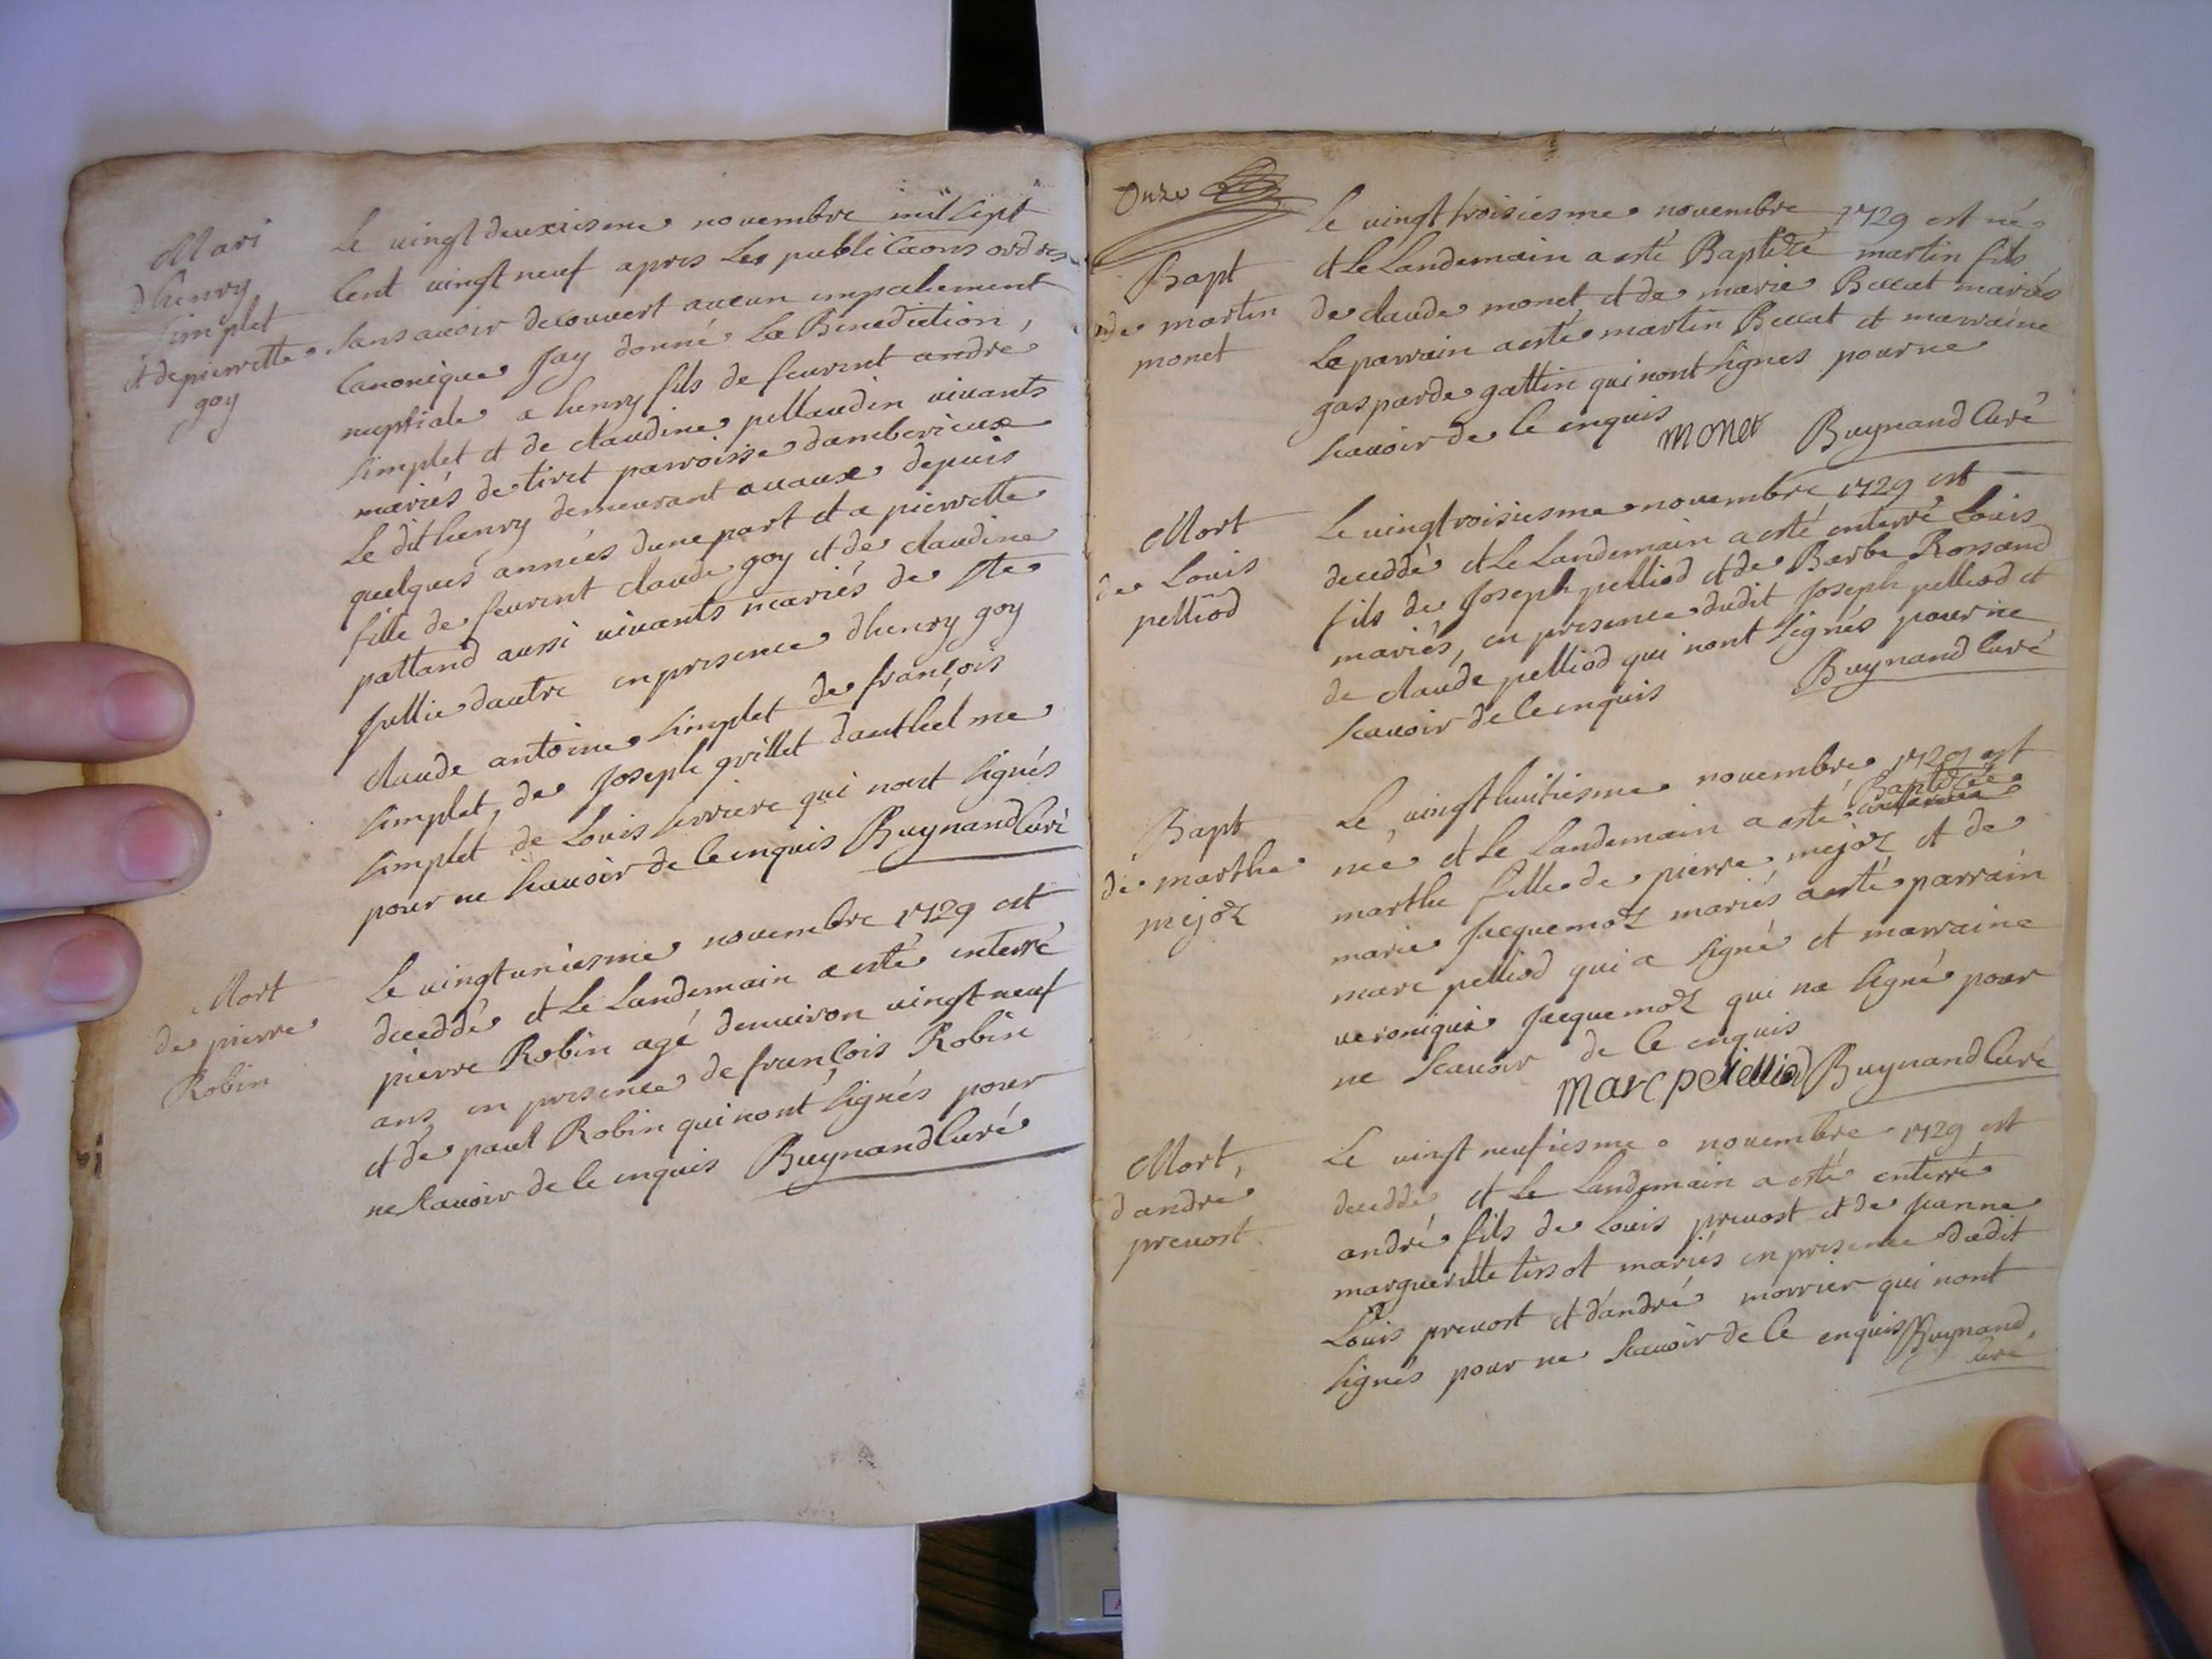 Mari
dhenry
simplet
et de pierrette
goy
Le vingtdeuxiesme novembre mil sept
Cent vingt neuf apres Les publicaons ordres
sans avoir decouvert aucun empechement
Canonique Jay donné La Benediction
nuptiale a henry fils de feurent andre
simplet et de claudine pellaudin vivants
mariés de tiret parroisse damberieux
Le dit henry demeurant avaux depuis
quelques années dune part et a pierrette
fille de feurent claude goy et de claudine
pattand aussi vivants mariés de Ste
Jullie dautre en presence dhenry goy
claude antoine simplet de françois
simplet, de Joseph grillet danthelme
simplet de Louis serriere qui nont signés
pour ne scavoir de ce enquis Buynand Curé
Mort
de pierre
Robin
Le vingtuniesme novembre 1729 est
deceddé et Le Landemain a esté enterré
pierre Robin agé denviron vingt neuf
ans en presence de françois Robin
et de paul Robin qui nont signés pour
ne scavoir de ce enquis Buynand Curé
Onze
Bapt
de martin
monet
Le vingt troisiesme novembre 1729 est né
et Le Landemain a esté Baptizé martin fils
de claude monet et de marie Beccat mariés
Le parrain a esté martin Beccat et marraine
gasparde gattin qui nont signes pour ne
scavoir de ce enquis
monet Buynand Curé
Mort
de Louis
pelliod
Le vingtroisiesme novembre 1729 est
deceddé et Le Landemain a esté enterré Louis
fils de Joseph pelliod et de Barbe Rossand
mariés, en presence dudit Joseph pelliod et
de claude pelliod qui nont signés pour ne
scavoir de ce enquis Buynand Curé
Bapt
de marthe
mejoz
Le vingthuitiesme novembre 1729 est
née et Le Landemain a esté Baptizée
marthe fille de pierre mejoz et de
marie Jacquemoz mariés a esté parrain
marc pelliod qui a signé et marraine
veronique Jacquemoz qui na signé pour
ne scavoir de ce enquis
Marc petelliod Buynand Curé
Mort,
dandré
prevost
Le vingt neufiesme novembre 1729 est
deceddé et Le Landemain a esté enterré
andré fils de Louis prevost et de Jeanne
margueritte tissot mariés en presence dudit
Louis prevost et dandré morrier qui nont
signés pour ne scavoir de ce enquis Buynand
Curé